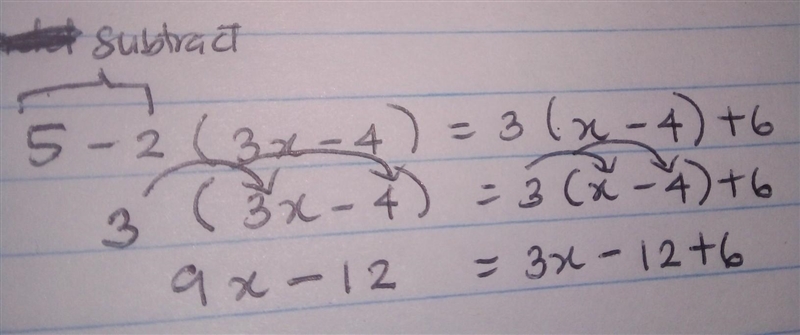 subtract
5 - 2 (3x - 4) = 3(x - 4) + 6
3 (3x - 4) = 3(x - 4) + 6
9x - 12 = 3x - 12 + 6